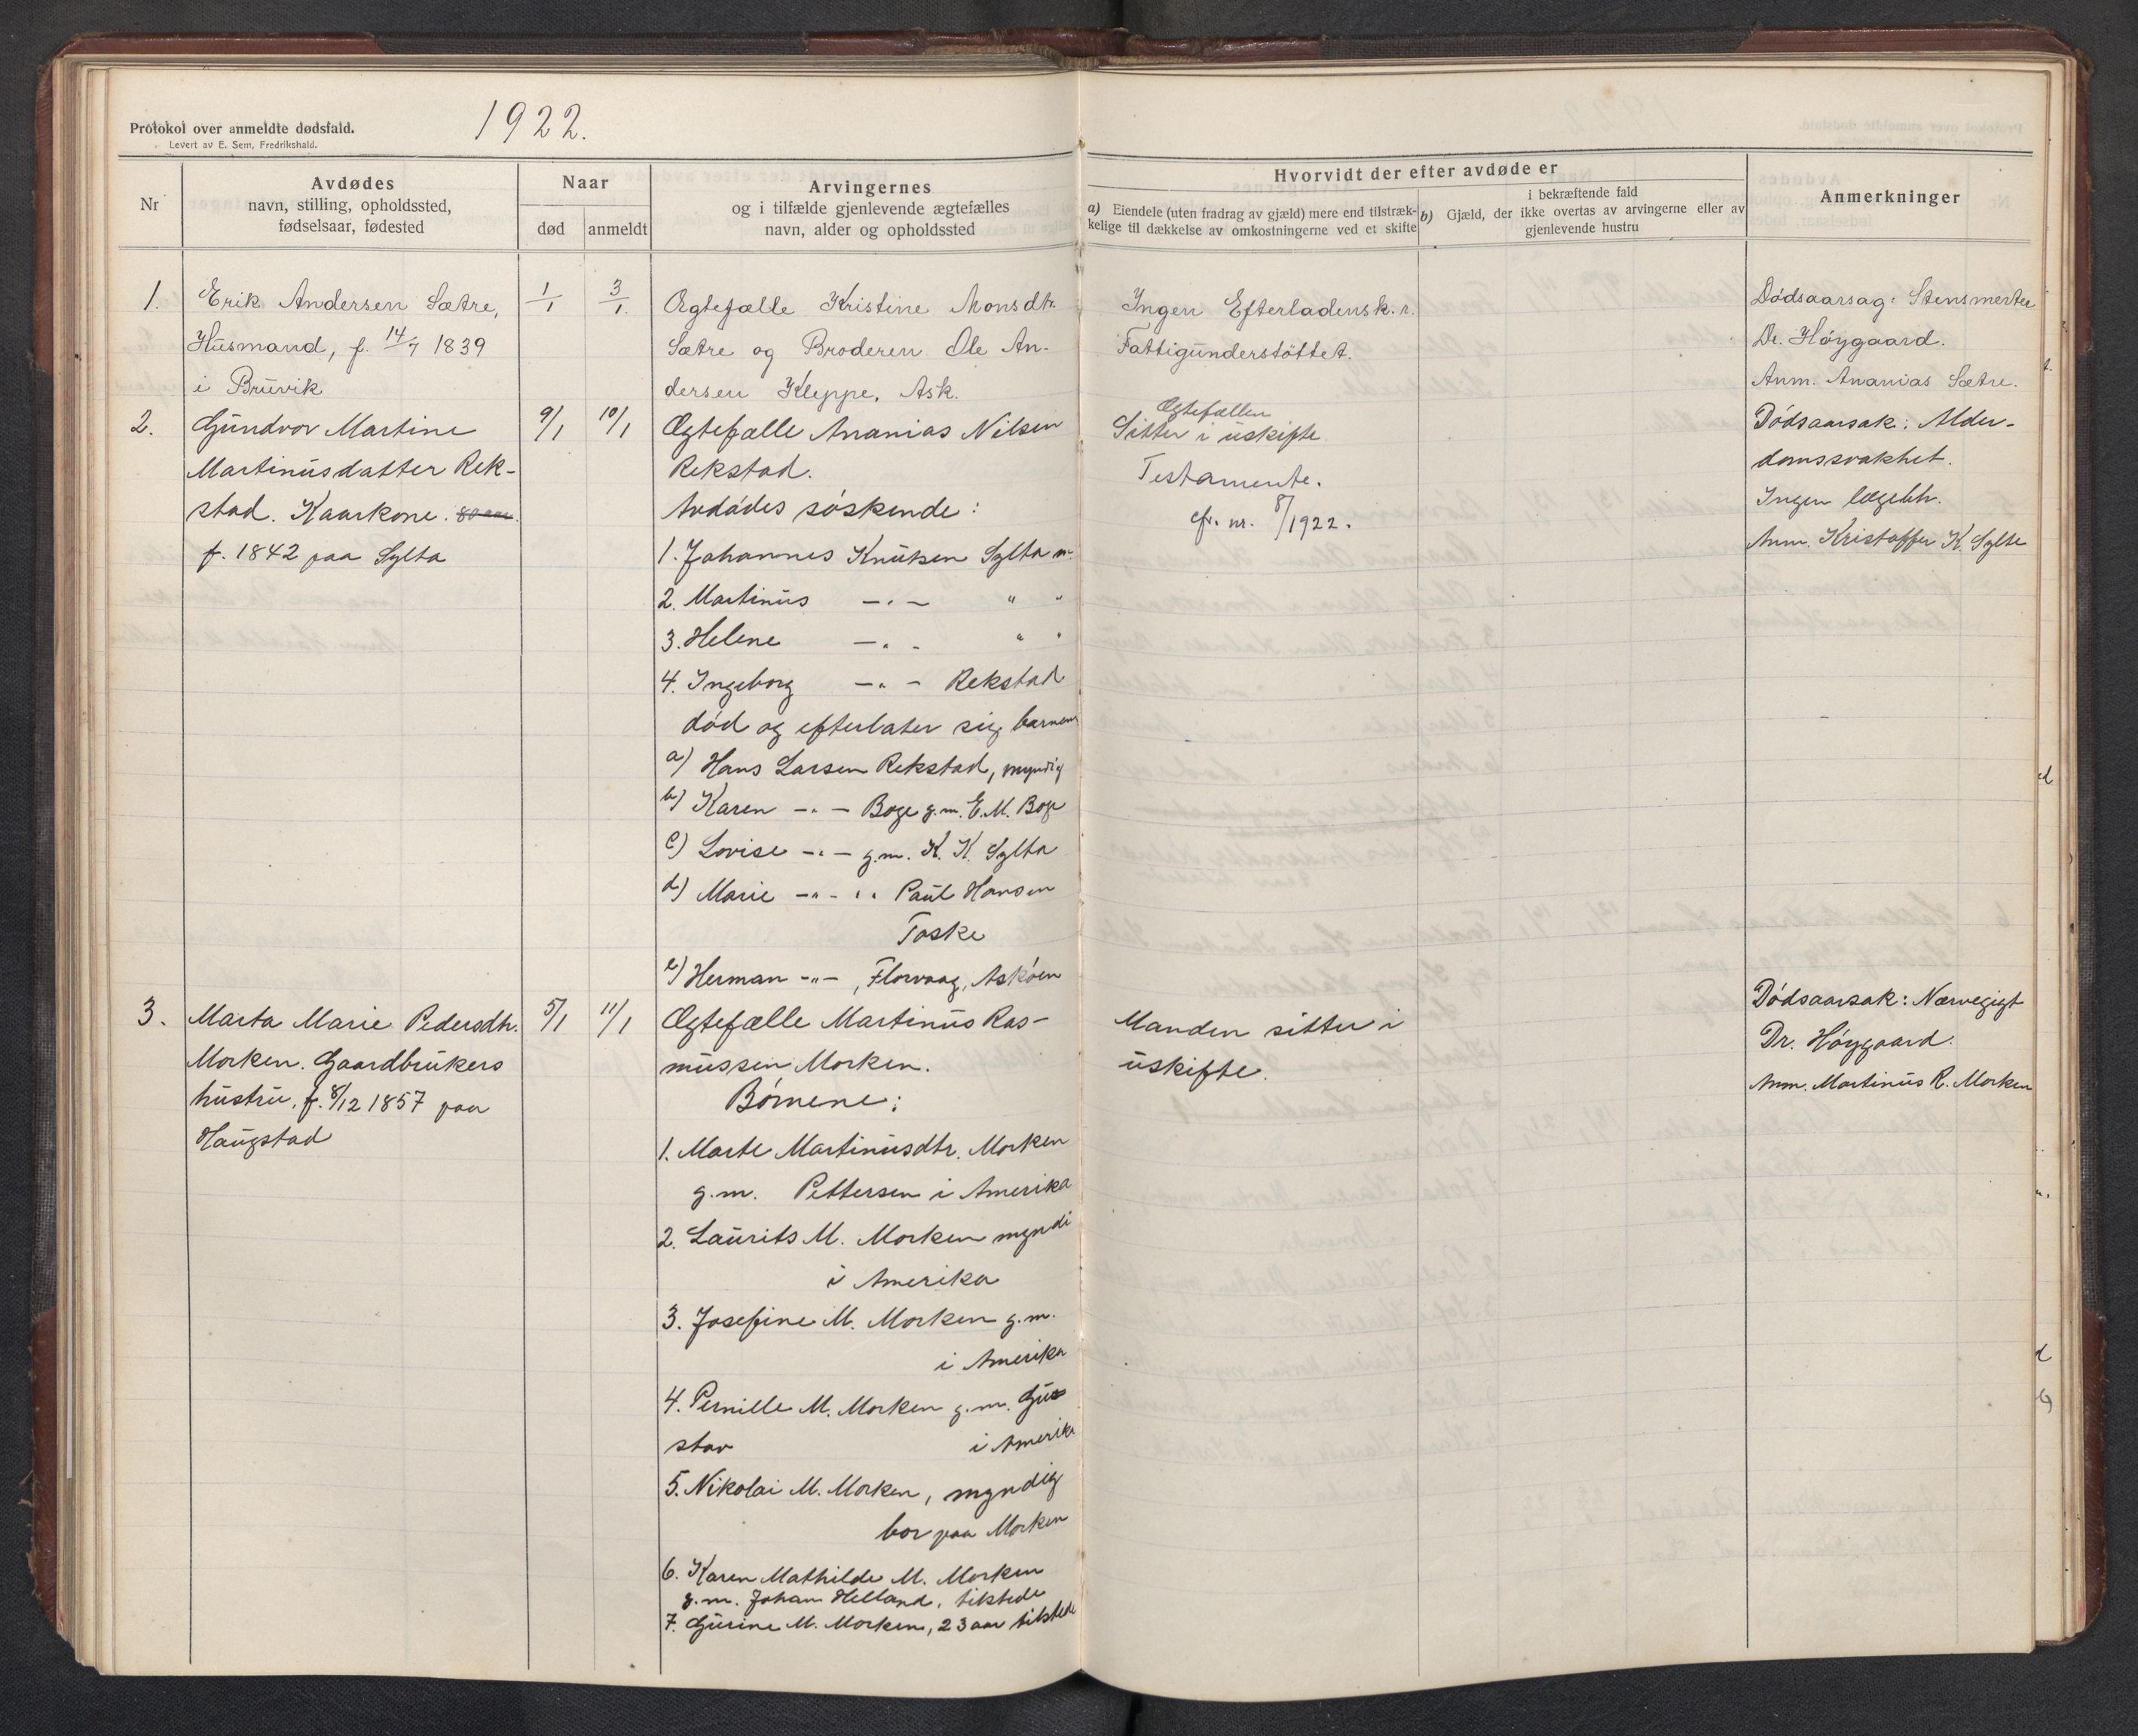 Protokol over anmeldte dødsfald.
Levert av E. Sem, Fredrikshald.
1922.
Nr
Avdødes
navn, stilling, opholdssted,
fødselsaar, fødested
Naar
død
anmeldt
Arvingernes
og i tilfælde gjenlevende ægtefælles
navn, alder og opholdssted
Hvorvidt der efter avdøde er
a) Eiendele (uten fradrag av gjæld) mere end tilstræk-
kelige til dækkelse av omkostningerne ved et skifte
i bekræftende fald
b) Gjæld, der ikke overtas av arvingerne eller av
gjenlevende hustru
Anmerkninger
1.
Erik Andersen Sætre,
Husmand, f. 14/7 1839
i Bruvik
1/1
3/1.
Ægtefælle Kristine Monsdtr.
Sætre og Broderen Ole An-
dersen Kleppe, Ask.
Ingen Efterladensk.
Fattigunderstöttet.
Dødsaarsag: Stensmerter
Dr. Høygaard.
Anm. Ananias Sætre.
2.
Gundvor Martine
Martinusdatter Rek-
stad. Kaarkone. 80 aar.
f. 1842 paa Sylta
9/1
10/1
Ægtefælle Ananias Nilsen
Rekstad.
Avdødes søskende:
1. Johannes Knutsen Sylta m.
2. Martinus -"- " "
3. Helene -"- " "
4. Ingeborg -"- Rekstad
død og efterlater sig barnene
a) Hans Larsen Rekstad, myndig
b) Karen -"- Boge g.m. E. M. Boge
c) Lovise -"- g.m. K. K. Sylta
d) Marie -"- " " Paul Hansen
Toske
e) Herman -"-, Florvaag, Askøen
Ægtefællen
Sitter i uskifte
Testamente.
cfr. nr. 8/1922.
Dødsaarsak: Alder-
domssvakhet.
Ingen lægebh.
Anm. Kristoffer K. Sylte
3.
Marta Marie Pedersdtr.
Morken. Gaardbrukers
hustru, f. 8/12 1857 paa
Haugstad
5/1
11/1
Ægtefælle Martinus Ras-
mussen Morken.
Børnene:
1. Marte Martinusdtr. Morken
g.m. Pettersen i Amerika
2. Laurits M. Morken myndi
i Amerika
3. Josefine M. Morken g.m.
i Amerika
4. Pernille M. Morken g.m. Gu
stav i Amerika
5. Nikolai M. Morken, myndig
bor paa Morken
6. Karen Mathilde M. Morken
g.m. Johan Helland, tilstede
7. Gurine M. Morken, 23 aar tilstede
Manden sitter i
uskifte.
Dødsaarsak: Nærvegigt
Dr. Høygaard.
Anm. Martinus R. Morken